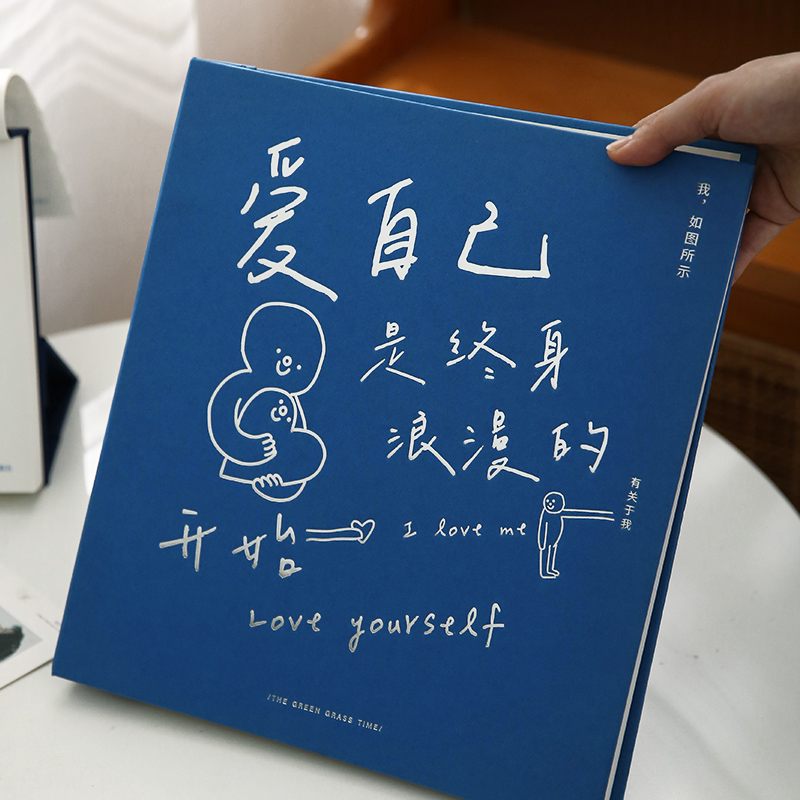 爱自己
是终身
浪漫的
开始
I love me
Love yourself
/THE GREEN GRASS TIME/
我，如图所示
有关于我